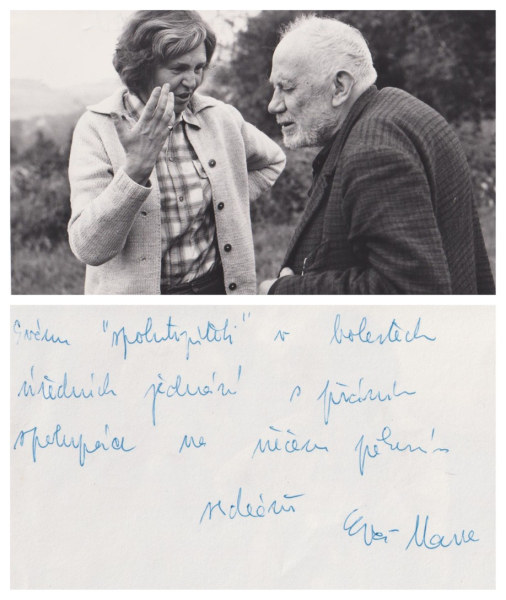 Svému "spolutrpiteli" v bolestech
úředních jednání s přáním
spolupráce na něčem pěkném
srdečně
Eva Marie